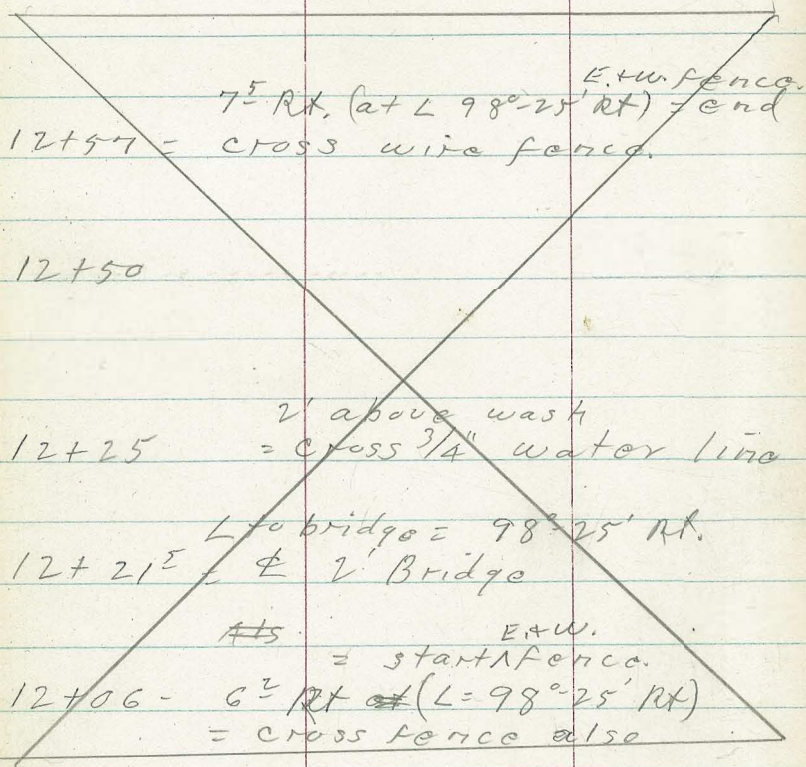 E. & W. fence.
7⁵ Rt. (at ∠ 98°-25' Rt) = end
12+57 = cross wire fence.
12+50
2' above wash
12+25 = cross 3/4" water line
∠ to bridge = 98°-25' Rt.
12+21⁵ = ℄ 2' Bridge
E. & W.
= start ^ fence.
12+06 - 6² Rt at (∠ = 98°-25' Rt)
= cross fence also